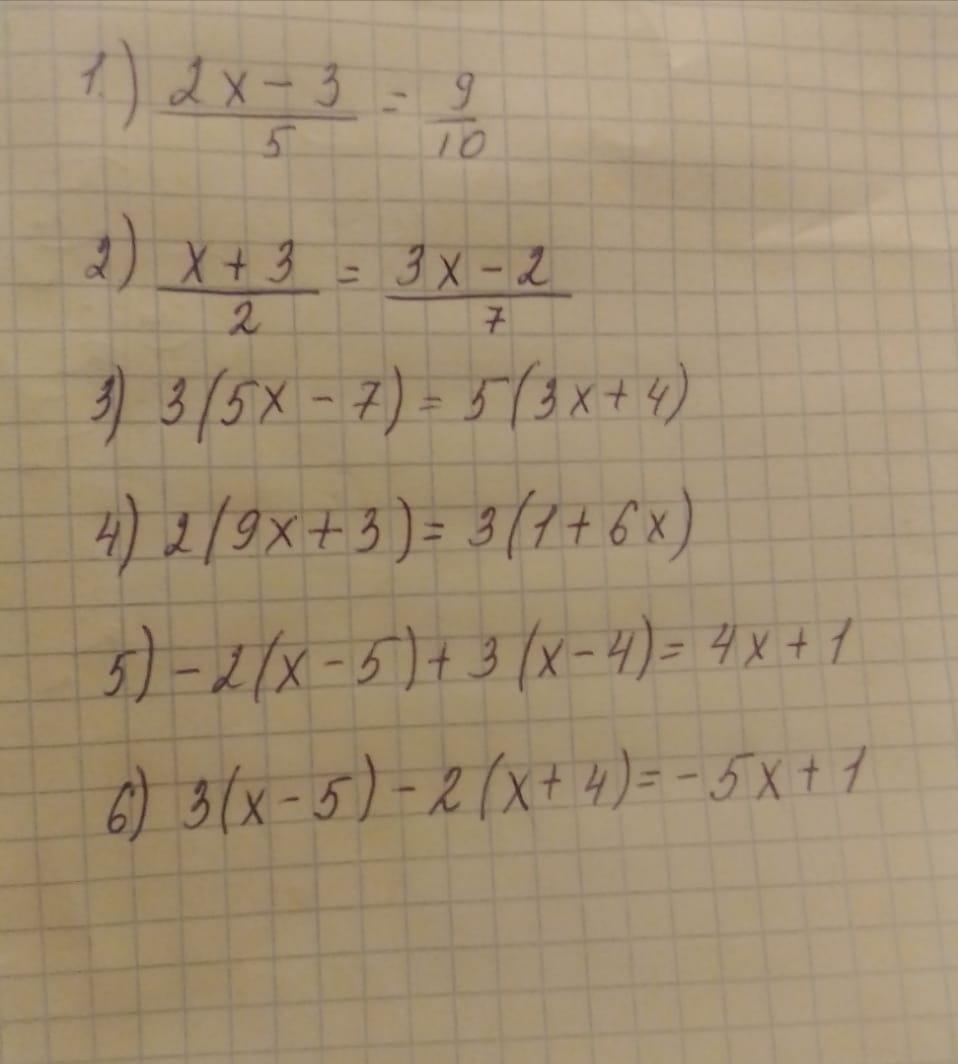 1.) (2x - 3)/5 = 9/10
2) (x + 3)/2 = (3x - 2)/7
3) 3(5x - 7) = 5(3x + 4)
4) 2(9x + 3) = 3(1 + 6x)
5) - 2(x - 5) + 3(x - 4) = 4x + 1
6) 3(x - 5) - 2(x + 4) = - 5x + 1